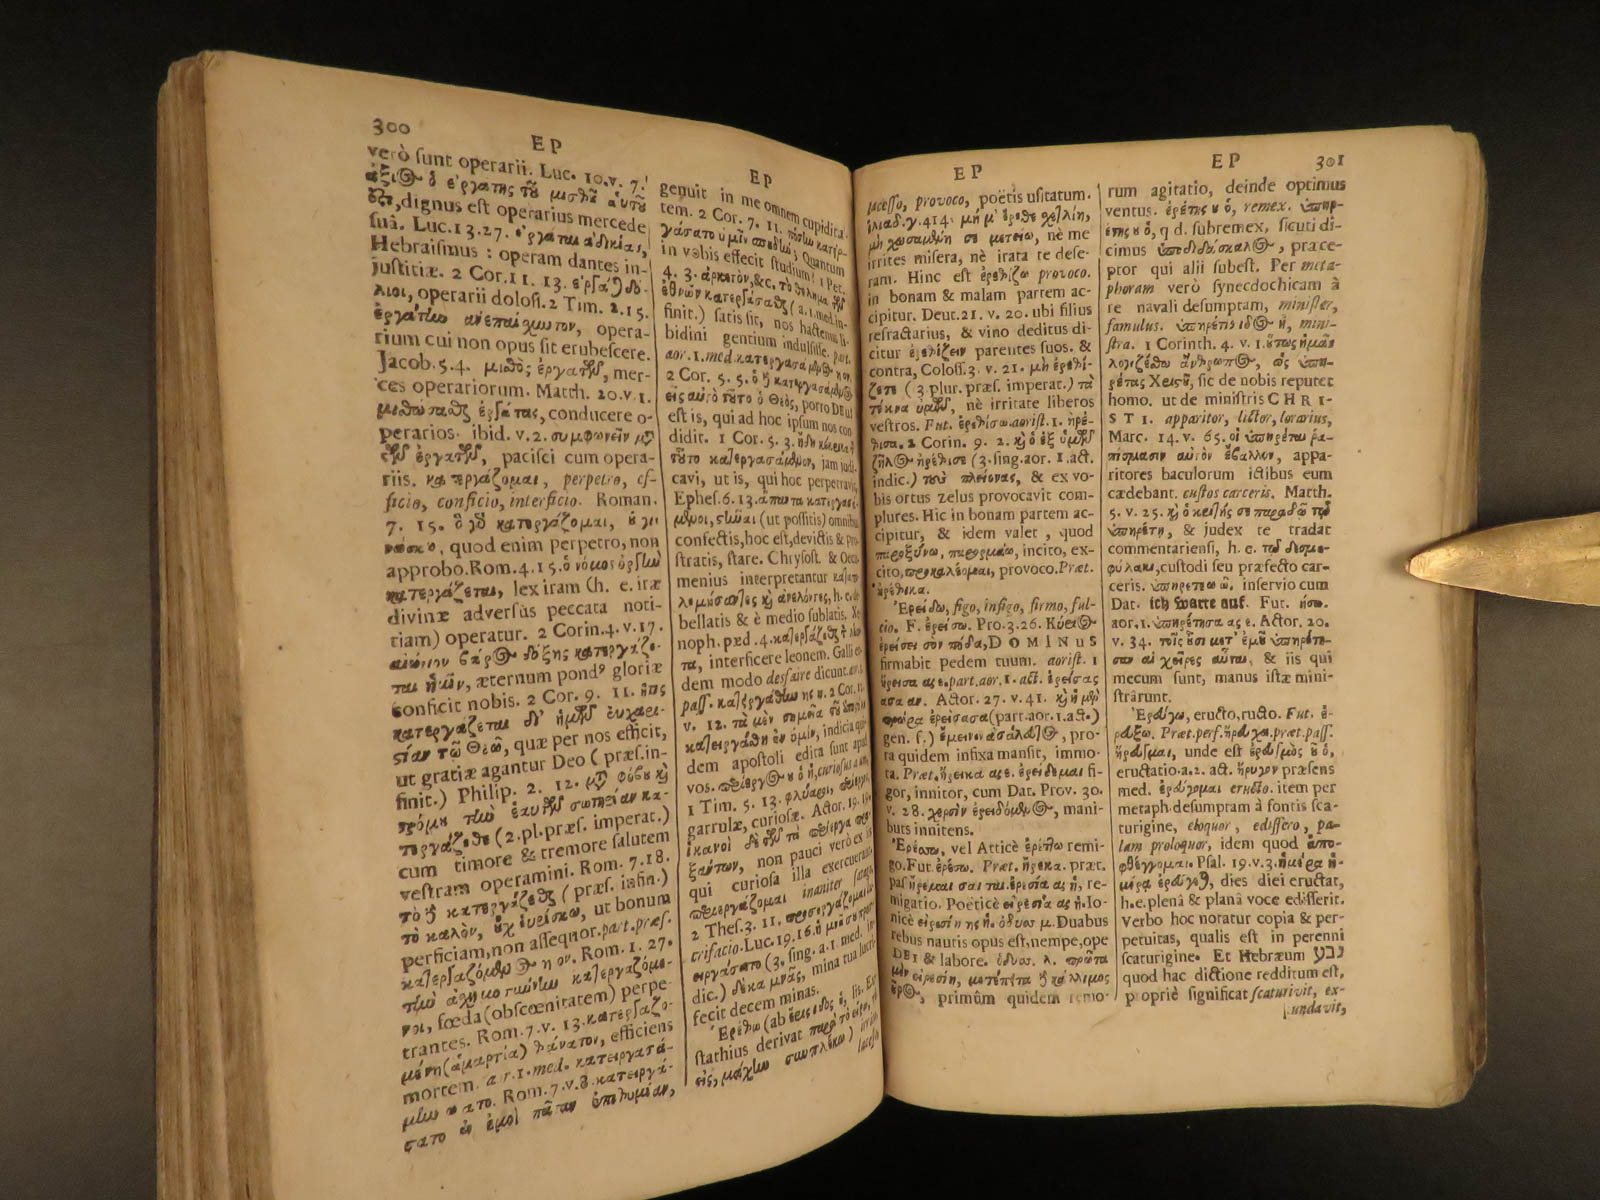 300
EP
verò sunt operarii. Luc. 10. v. 7.
ἄξιος ὁ ἐργάτης τοῦ μισθοῦ αὐτοῦ
ἐστι, dignus est operarius mercede
suâ. Luc. 13. 27. ἐργάται ἀδικίας,
Hebraismus : operam dantes in-
justitiæ. 2 Cor. 11. 13. ἐργάται δό-
λιοι, operarii dolosi. 2 Tim. 2. 15.
ἐργάτην ἀνεπαίσχυντον, opera-
rium cui non opus sit erubescere.
Jacob. 5. 4. μισθὸς ἐργατῶν, mer-
ces operariorum. Matth. 20. v. 1.
μισθώσασθαι ἐργάτας, conducere o-
perarios. ibid. v. 2. συμφωνεῖν μετὰ
τῶν ἐργατῶν, pacisci cum opera-
riis. κατεργάζομαι, perpetro, ef-
ficio, conficio, interficio. Roman.
7. 15. ὃ γὰρ κατεργάζομαι, οὐ γι-
νώσκω, quod enim perpetro, non
approbo. Rom. 4. 15. ὁ νόμος ὀργὴν
κατεργάζεται, lex iram (h. e. iræ
divinæ adversùs peccata noti-
tiam) operatur. 2 Corin. 4. v. 17.
αἰώνιον βάρος δόξης κατεργάζε-
ται ἡμῖν, æternum pondꝰ gloriæ
conficit nobis. 2 Cor. 9. 11. ἥτις
κατεργάζεται δι' ἡμῶν εὐχαρι-
στίαν τῷ Θεῷ, quæ per nos efficit,
ut gratiæ agantur Deo (præs. in-
finit.) Philip. 2. 12. μετὰ φόβου καὶ
τρόμου τὴν ἑαυτῶν σωτηρίαν κα-
τεργάζεσθε (2. pl. præs. imperat.)
cum timore & tremore salutem
vestram operamini. Rom. 7. 18.
τὸ δὲ κατεργάζεσθαι (præs. infin.)
τὸ καλὸν, οὐχ εὑρίσκω, ut bonum
perficiam, non assequor. part. præs.
κατεργαζόμενος η ον. Rom. 1. 27.
τὴν ἀσχημοσύνην κατεργαζόμε-
νοι, fœda (obscœnitatem) perpe-
trantes. Rom. 7. v. 13. κατεργαζο-
μένη (ἁμαρτία) θάνατον, efficiens
mortem. aor. 1. med. κατειργασά-
μην ω ατο. Rom. 7. v. 8. κατειργά-
σατο ἐν ἐμοὶ πᾶσαν ἐπιθυμίαν,
EP
genuit in me omnem cupidita-
tem. 2 Cor. 7. 11. πόσην κατειρ-
γάσατο ὑμῖν σπουδὴν; Quantum
in vobis effecit studium? 1 Pet.
4. 3. ἀρκετὸν, &c. τὸ θέλημα τῶν
ἐθνῶν κατεργάσασθαι (a. 1. med. in-
finit.) satis sit, nos hactenus li-
bidini gentium indulsisse. part.
aor. 1. med. κατεργασάμενος η ον.
2 Cor. 5. 5. ὁ δὲ κατεργασάμενος
εἰς αὐτὸ τοῦτο ὁ Θεὸς, porro Deus
est is, qui ad hoc ipsum nos con
didit. 1 Cor. 5. 3. ἤδη κέκρικα τὸν
τοῦτο κατεργασάμενον, jam judi-
cavi, ut is, qui hoc perpetravit,
Ephes. 6. 13. ἅπαντα κατεργασά-
μενοι, στῆναι (ut possitis) omnibus
confectis, hoc est, devictis & pro-
stratis, stare. Chrysost. & Oecu-
menius interpretantur
h. e. de-
bellatis & è medio sublatis. Xe
noph. pæd. 4.
interficere leonem. Galli e-
dem modo desfaire dicunt. aor. 1
pass. κατειργάσθην ης η. 2 Cor. 12.
v. 12. τὰ μὲν σημεῖα τοῦ ἀποστόλου
κατειργάσθη ἐν ὑμῖν, indicia qui-
dem apostoli edita sunt apud
vos. περίεργος ου ὁ ἡ, curiosus a um,
1 Tim. 5. 13. φλύαροι, περίεργοι,
garrulæ, curiosæ. Actor. 19. 19.
ἱκανοὶ δὲ τῶν τὰ περίεργα πρα-
ξάντων, non pauci verò ex iis
qui curiosa illa exercuerant.
περιεργάζομαι inaniter satago.
2 Thes. 3. 11. προσεργάζομαι lu-
crifacio. Luc. 19. 16. ἡ μνᾶ σου προσ-
ειργάσατο (3. sing. a. 1. med. in-
dic.) δέκα μνᾶς, mina tua lucri-
fecit decem minas.
Ἐρέθω (ab ἔρις ιδος ἡ, lis. Eu-
stathius derivat παρὰ τὸ εἴρω,
εἰς μάχην συμπλέκω) irrito
lacesso
EP
lacesso, provoco, poëtis usitatum.
ἰλιαδ. γ. 414. μή μ' ἔρεθε σχετλίη,
μὴ χωσαμένη σε μεθείω, nè me
irrites misera, nè irata te dese-
ram. Hinc est ἐρεθίζω provoco.
in bonam & malam partem ac-
cipitur. Deut. 21. v. 20. ubi filius
refractarius, & vino deditus di-
citur ἐρεθίζειν parentes suos. &
contra, Coloss. 3. v. 21. μὴ ἐρεθί-
ζετε (3 plur. præs. imperat.) τὰ
τέκνα ὑμῶν, nè irritate liberos
vestros. Fut. ἐρεθίσω. aorist. 1. ἠρέ-
θισα. 2 Corin. 9. 2. καὶ ὁ ἐξ ὑμῶν
ζῆλος ἠρέθισε (3. sing. aor. 1. act.
indic.) τοὺς πλείονας, & ex vo-
bis ortus zelus provocavit com-
plures. Hic in bonam partem ac-
cipitur, & idem valet, quod
παροξύνω, παρορμάω, incito, ex-
cito, προκαλέομαι, provoco. Præt.
ἠρέθικα.
Ἐρείδω, figo, infigo, firmo, ful-
cio. F. ἐρείσω. Pro. 3. 26. Κύριος
ἐρείσει σὸν πόδα, DOMINUS
firmabit pedem tuum. aorist. 1
ἤρεισα ας ε. part. aor. 1. act. ἐρείσας
ασα αν. Actor. 27. v. 41. καὶ ἡ μὲν
πρώρα ἐρείσασα (part. aor. 1. act.)
gen. f.) ἔμεινεν ἀσάλευτος, pro-
ra quidem infixa mansit, immo-
ta. Præt. ἤρεικα ας ε. ἐρείδομαι fi-
gor, innitor, cum Dat. Prov. 30.
v. 28. χερσὶν ἐρειδόμενος, mani-
bus innitens.
Ἐρέσσω, vel Atticè ἐρέττω remi-
go. Fut. ἐρέσω. Præt. ἤρεκα. præt.
pas. ἤρεμαι σαι ται. ἐρεσία ας ἡ, re-
migatio. Poëticè εἰρεσία ας ἡ. Io-
nicè εἰρεσίη ης ἡ. ὀδυσσ μ. Duabus
rebus nautis opus est, nempe, ope
DEI & labore. ὀδυσ. λ. πρῶτα
μὲν εἰρεσίη, μετέπειτα δὲ κάλλιμος
οὖρος, primùm quidem remo-
EP
301
rum agitatio, deinde optimus
ventus. ἐρέτης ου ὁ, remex. ὑπηρ-
έτης ου ὁ, q d. subremex, sicuti di-
cimus ὑποδιδάσκαλος, præce-
ptor qui alii subest. Per meta-
phoram verò synecdochicam à
re navali desumptam, minister,
famulus. ὑπηρέτις ιδος ἡ, mini-
stra. 1 Corinth. 4. v. 1. οὕτως ἡμᾶς
λογιζέσθω ἄνθρωπος, ὡς ὑπη-
ρέτας Χριστοῦ, sic de nobis reputet
homo. ut de ministris CHRI-
STI. apparitor, lictor, lorarius,
Marc. 14. v. 65. οἱ ὑπηρέται ῥα-
πίσμασιν αὐτὸν ἔβαλλον, appa-
ritores baculorum ictibus eum
cædebant. custos carceris. Matth.
5. v. 25. καὶ ὁ κριτής σε παραδῷ τῷ
ὑπηρέτῃ, & judex te tradat
commentariensi, h. e. τῷ δεσμο-
φύλακι, custodi seu præfecto car-
ceris. ὑπηρετέω ῶ, inservio cum
Dat. ich warte auf. Fut. ήσω.
aor. 1. ὑπηρέτησα ας ε. Actor. 20.
v. 34. τοῖς οὖσι μετ' ἐμοῦ ὑπηρέτη-
σαν αἱ χεῖρες αὗται, & iis qui
mecum sunt, manus istæ mini-
strârunt.
Ἐρεύγω, eructo, ructo. Fut. ἐ-
ρεύξω. Præt. perf. ἤρευχα. præt. pass.
ἤρευγμαι, unde est ἐρευγμὸς οῦ ὁ,
eructatio. a. 2. act. ἤρυγον præsens
med. ἐρεύγομαι eructo. item per
metaph. desumptam à fontis sca-
turigine, eloquor, edissero, pa-
lam proloquor, idem quod ἀπο-
φθέγγομαι. Psal. 19. v. 3. ἡμέρα ἡ-
μέρᾳ ἐρεύγεται, dies diei eructat,
h. e. plenâ & planâ voce edisserit.
Verbo hoc notatur copia & per-
petuitas, qualis est in perenni
scaturigine. Et Hebræum נבע
quod hac dictione redditum est,
propriè significat scaturivit, ex-
undavit,